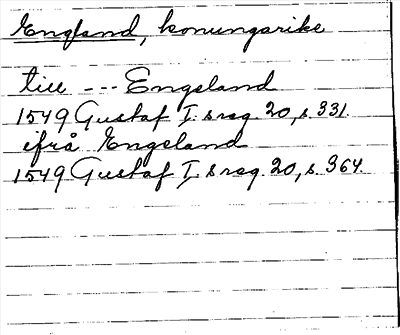 England, konungarike
till --- Engeland
1549 Gustaf I:s reg. 20, s. 331.
ifrå Engeland
1549 Gustaf I:s reg. 20, s. 364.